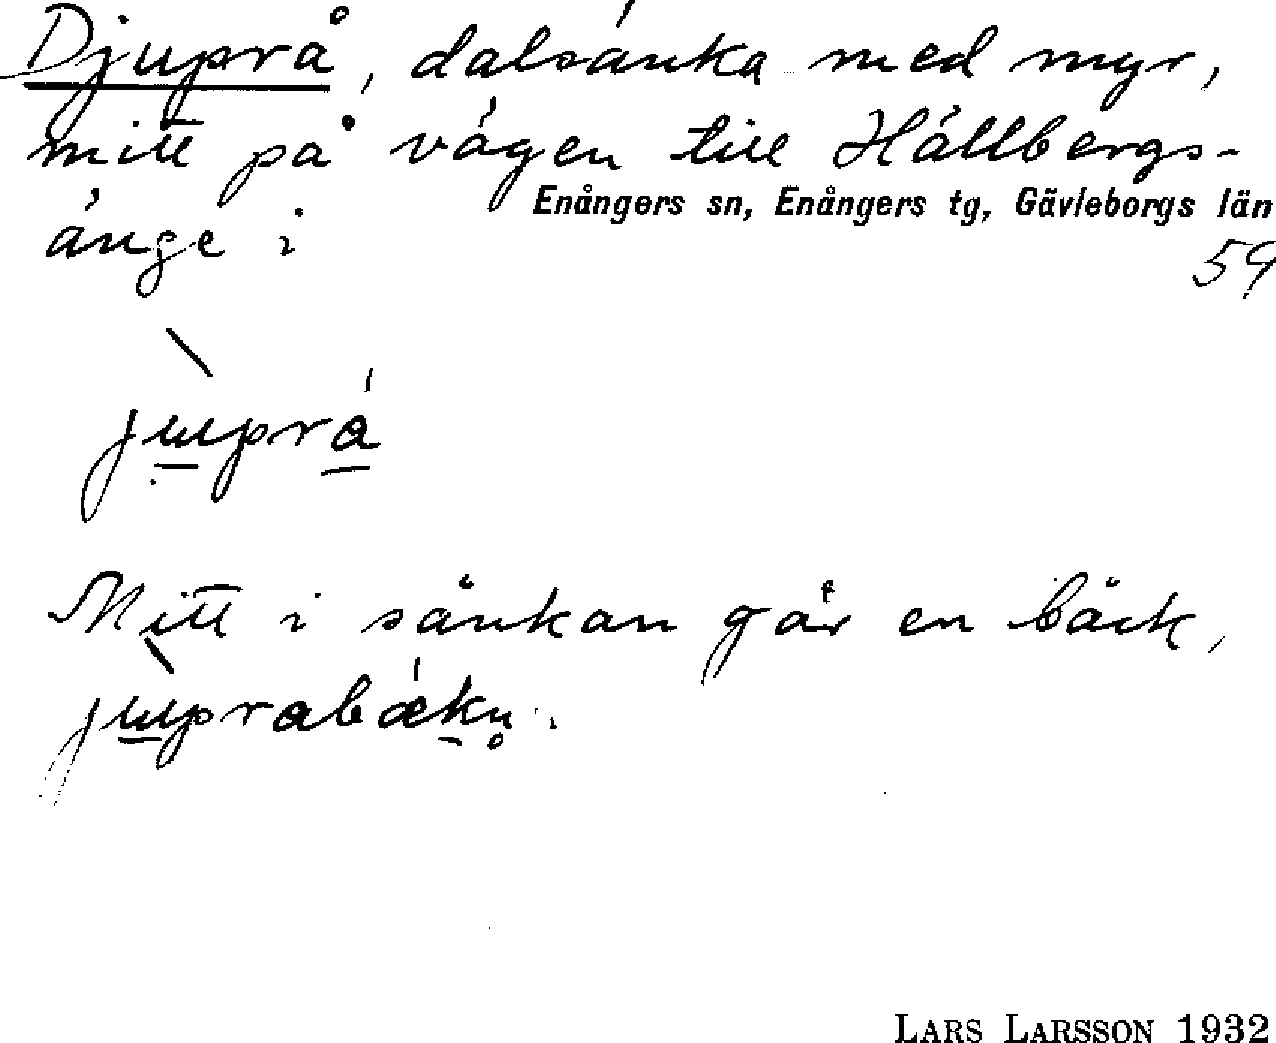 Djuprå, dalsänka med myr,
mitt på vägen till Hällbergs-
Enångers sn, Enångers tg, Gävleborgs län
änge i
59
jupra
Mitt i sänkan går en bäck,
juprabækn.
LARS LARSSON 1932